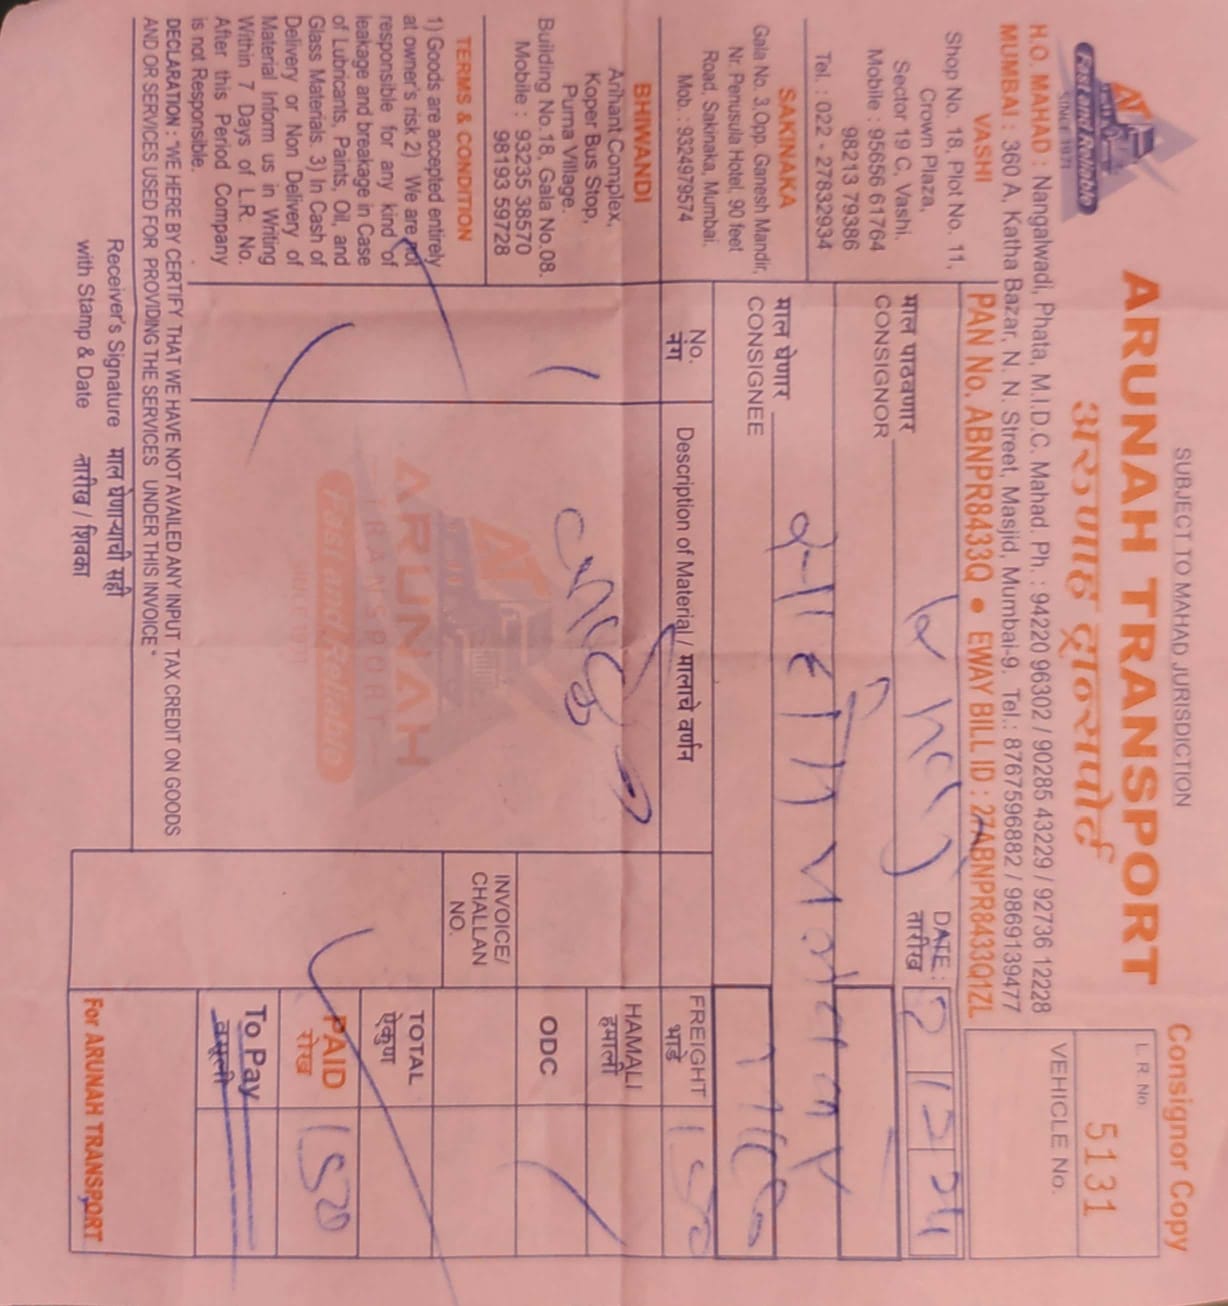 SUBJECT TO MAHAD JURISDICTION
Consignor Copy
ARUNAH TRANSPORT
अरुणाह ट्रान्सपोर्ट
AT
Fast and Reliable
SINCE 1971
L. R. No.
5131
VEHICLE No.
H.O. MAHAD : Nangalwadi, Phata, M.I.D.C. Mahad. Ph. : 94220 96302 / 90285 43229 / 92736 12228
MUMBAI : 360 A, Katha Bazar, N. N. Street, Masjid, Mumbai-9. Tel.: 8767596882 / 9869139477
VASHI
Shop No. 18, Plot No. 11,
Crown Plaza,
Sector 19 C, Vashi.
Mobile : 95656 61764
98213 79386
Tel. : 022 - 27832934
SAKINAKA
Gala No. 3,Opp. Ganesh Mandir,
Nr. Penusula Hotel, 90 feet
Road, Sakinaka, Mumbai.
Mob. : 9324979574
BHIWANDI
Arihant Complex,
Koper Bus Stop,
Purna Village.
Building No.18, Gala No.08.
Mobile : 93235 38570
98193 59728
TERMS & CONDITION
1) Goods are accepted entirely
at owner's risk 2) We are not
responsible for any kind of
leakage and breakage in Case
of Lubricants, Paints, Oil, and
Glass Materials. 3) In Cash of
Delivery or Non Delivery of
Material Inform us in Writing
Within 7 Days of L.R. No.
After this Period Company
is not Responsible.
PAN No. ABNPR8433Q • EWAY BILL ID : 27ABNPR8433Q1ZL
माल पाठवणार
CONSIGNOR
DATE :
तारीख
माल घेणार
CONSIGNEE
No.
नंग
Description of Material / मालाचे वर्णन
FREIGHT
भाडे
HAMALI
हमाली
ODC
INVOICE/
CHALLAN
NO.
TOTAL
ऐकुण
PAID
रोख
1520
To Pay
वसूली
ARUNAH
TRANSPORT
Fast and Reliable
SINCE 1971
DECLARATION : "WE HERE BY CERTIFY THAT WE HAVE NOT AVAILED ANY INPUT TAX CREDIT ON GOODS
AND OR SERVICES USED FOR PROVIDING THE SERVICES UNDER THIS INVOICE"
Receiver's Signature माल घेणाऱ्याची सही
with Stamp & Date तारीख / शिक्का
For ARUNAH TRANSPORT